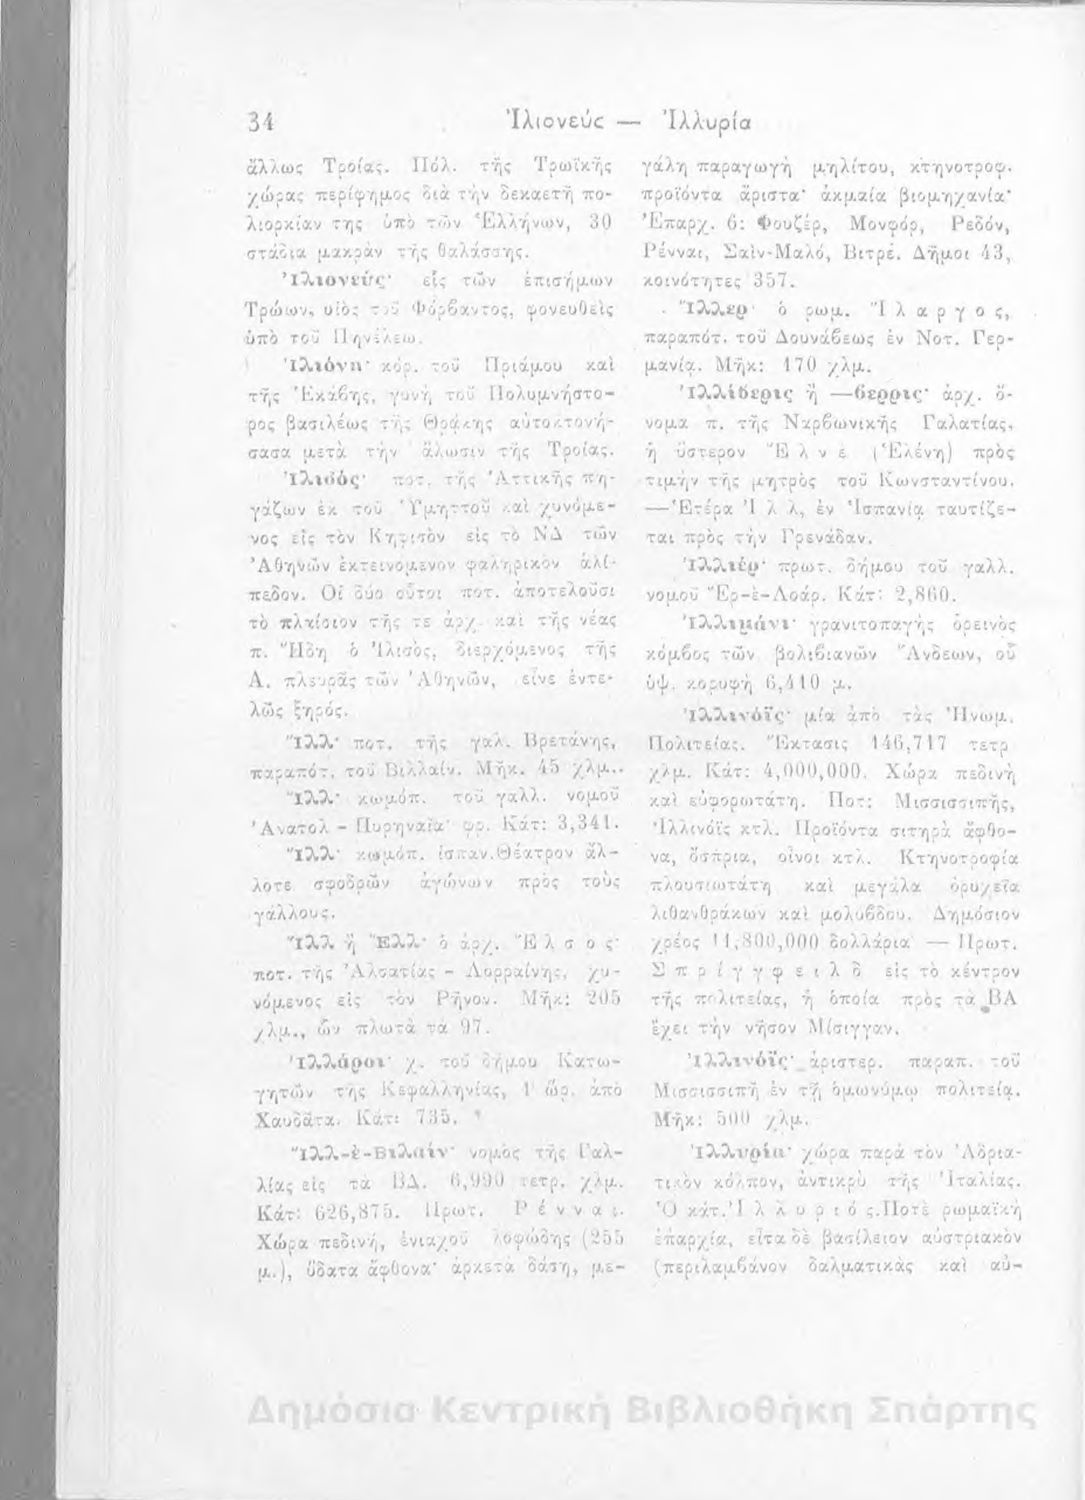 34
Ἰλιονεύς — Ἰλλυρία
ἄλλως Τροίας. Πόλ. τῆς Τρωϊκῆς
χώρας περίφημος διὰ τὴν δεκαετῆ πο-
λιορκίαν της ὑπὸ τῶν Ἑλλήνων, 30
στάδια μακρὰν τῆς θαλάσσης.
Ἰλιονεύς· εἷς τῶν ἐπισήμων
Τρώων, υἱὸς τοῦ Φόρβαντος, φονευθεὶς
ὑπὸ τοῦ Πηνέλεω.
Ἰλιόνη· κόρ. τοῦ Πριάμου καὶ
τῆς Ἑκάβης, γυνὴ τοῦ Πολυμνήστο-
ρος βασιλέως τῆς Θράκης αὐτοκτονή-
σασα μετὰ τὴν ἅλωσιν τῆς Τροίας.
Ἰλισός· ποτ. τῆς Ἀττικῆς πη-
γάζων ἐκ τοῦ Ὑμηττοῦ καὶ χυνόμε-
νος εἰς τὸν Κηφισὸν εἰς τὸ ΝΔ τῶν
Ἀθηνῶν ἐκτεινόμενον φαληρικὸν ἁλί-
πεδον. Οἱ δύο οὗτοι ποτ. ἀποτελοῦσι
τὸ πλαίσιον τῆς τε ἀρχ. καὶ τῆς νέας
π. Ἤδη ὁ Ἰλισὸς, διερχόμενος τῆς
Α. πλευρᾶς τῶν Ἀθηνῶν, εἶνε ἐντε-
λῶς ξηρός.
Ἴλλ· ποτ. τῆς γαλ. Βρετάνης,
παραπότ. τοῦ Βιλλαίν. Μῆκ. 45 χλμ..
Ἴλλ· κωμόπ. τοῦ γαλλ. νομοῦ
Ἀνατολ - Πυρηναῖα· φρ. Κάτ: 3,341.
Ἴλλ· κωμόπ. ἱσπαν. Θέατρον ἄλ-
λοτε σφοδρῶν ἀγώνων πρὸς τοὺς
γάλλους.
Ἴλλ ἢ Ἔλλ· ὁ ἀρχ. Ἔ λ σ ο ς·
ποτ. τῆς Ἀλσατίας - Λορραίνης, χυ-
νόμενος εἰς τὸν Ρῆνον. Μῆκ: 205
χλμ., ὧν πλωτὰ τὰ 97.
Ἰλλάροι· χ. τοῦ δήμου Κατω-
γητῶν τῆς Κεφαλληνίας, 1 ὥρ. ἀπὸ
Χαυδᾶτα. Κάτ: 735.
Ἴλλ-ὲ-Βιλαίν· νομὸς τῆς Γαλ-
λίας εἰς τὰ ΒΔ. 6,990 τετρ. χλμ.
Κάτ: 626,875. Πρωτ. Ρ έ ν ν α ι.
Χώρα πεδινή, ἐνιαχοῦ λοφώδης (255
μ.), ὕδατα ἄφθονα· ἀρκετὰ δάση, με-
γάλη παραγωγὴ μηλίτου, κτηνοτροφ.
προϊόντα ἄριστα· ἀκμαία βιομηχανία·
Ἐπαρχ. 6: Φουζέρ, Μονφόρ, Ρεδόν,
Ρένναι, Σαὶν-Μαλό, Βιτρέ. Δῆμοι 43,
κοινότητες 357.
Ἴλλερ· ὁ ρωμ. Ἴ λ α ρ γ ο ς,
παραπότ. τοῦ Δουνάβεως ἐν Νοτ. Γερ-
μανίᾳ. Μῆκ: 170 χλμ.
Ἰλλίβερις ἢ —βερρις· ἀρχ. ὄ-
νομα π. τῆς Ναρβωνικῆς Γαλατίας,
ἡ ὕστερον Ἔ λ ν ε (Ἑλένη) πρὸς
τιμὴν τῆς μητρὸς τοῦ Κωνσταντίνου.
—Ἑτέρα Ἰ λ λ, ἐν Ἱσπανίᾳ ταυτίζε-
ται πρὸς τὴν Γρενάδαν.
Ἰλλιέρ· πρωτ. δήμου τοῦ γαλλ.
νομοῦ Ἒρ-ὲ-Λοάρ. Κάτ: 2,860.
Ἰλλιμάνι· γρανιτοπαγὴς ὀρεινὸς
κόμβος τῶν βολιβιανῶν Ἄνδεων, οὗ
ὑψ. κορυφὴ 6,410 μ.
Ἰλλινόϊς· μία ἀπὸ τὰς Ἡνωμ.
Πολιτείας. Ἔκτασις 146,717 τετρ
χλμ. Κάτ: 4,000,000. Χώρα πεδινὴ
καὶ εὐφορωτάτη. Ποτ: Μισσισσιπῆς,
Ἰλλινόϊς κτλ. Προϊόντα σιτηρὰ ἄφθο-
να, ὄσπρια, οἶνοι κτλ. Κτηνοτροφία
πλουσιωτάτη καὶ μεγάλα ὀρυχεῖα
λιθανθράκων καὶ μολύβδου. Δημόσιον
χρέος 11,800,000 δολλάρια — Πρωτ.
Σ π ρ ί γ γ φ ε ι λ δ εἰς τὸ κέντρον
τῆς πολιτείας, ἡ ὁποία πρὸς τὰ ΒΑ
ἔχει τὴν νῆσον Μίσιγγαν.
Ἰλλινόϊς· ἀριστερ. παραπ. τοῦ
Μισσισσιπῆ ἐν τῇ ὁμωνύμῳ πολιτείᾳ.
Μῆκ: 500 χλμ.
Ἰλλυρία· χώρα παρὰ τὸν Ἀδρια-
τικὸν κόλπον, ἀντικρὺ τῆς Ἰταλίας.
Ὁ κάτ. Ἰ λ λ υ ρ ι ό ς. Ποτὲ ρωμαϊκὴ
ἐπαρχία, εἶτα δὲ βασίλειον αὐστριακὸν
(περιλαμβάνον δαλματικὰς καὶ αὐ-
Δημόσια Κεντρική Βιβλιοθήκη Σπάρτης